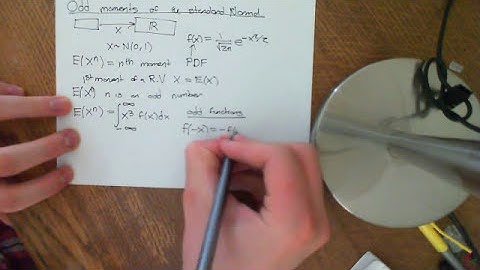 Odd moments of a standard Normal
X
R
X ~ N(0,1)
f(x) = 1/√2π e^(-x²/2)
PDF
E(Xⁿ) = nth moment
1st moment of a R.V X = E(X)
E(Xⁿ) n is an odd number
E(Xⁿ) = ∫_{-∞}^{+∞} x³ f(x)dx
odd functions
f(-x) = -f(